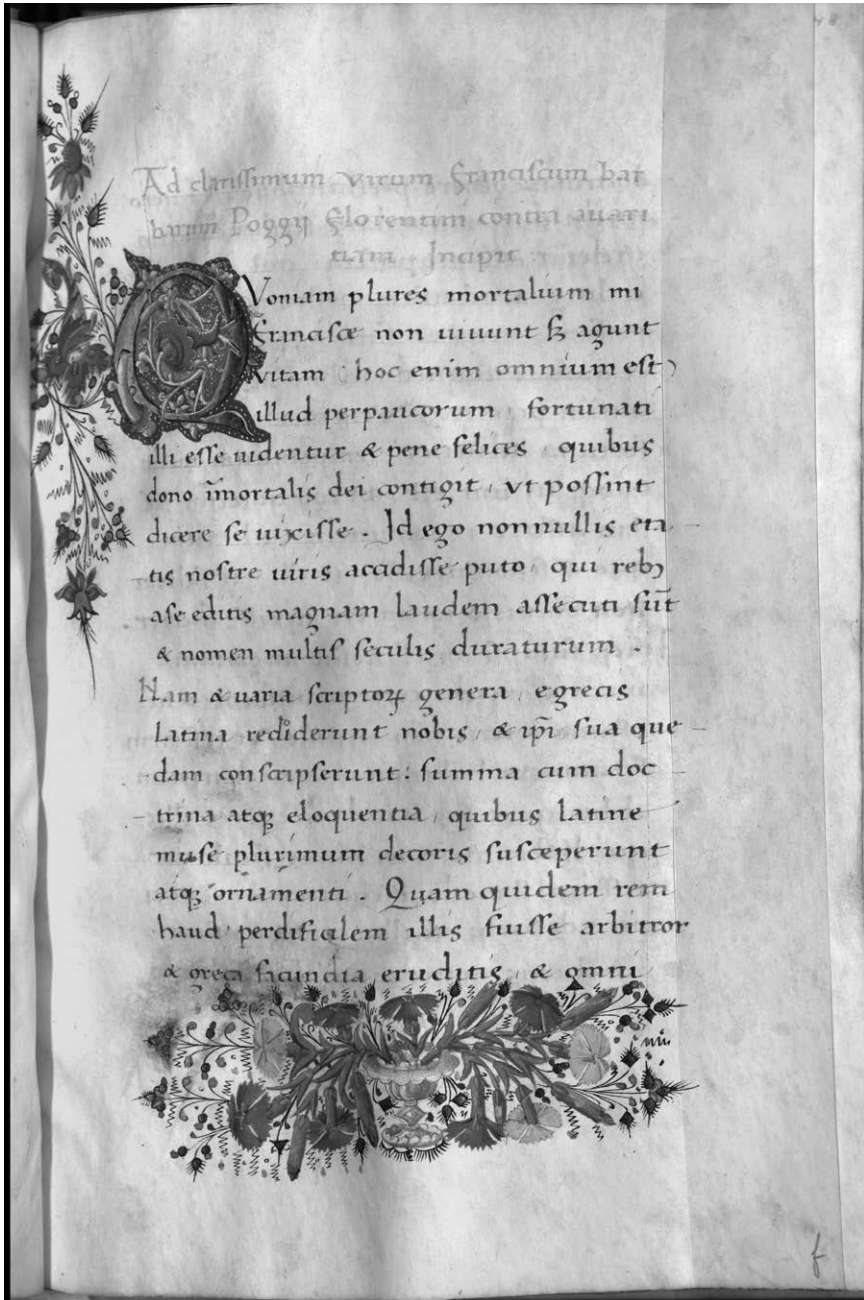 48
Ad clarissimum virum Franciscum bar
barum Poggij Florentini contra auari
tiam Incipit
QVoniam plures mortalium mi
Francisce non uiuunt sꝫ agunt
vitam (hoc enim omnium est)
illud perpaucorum, fortunati
illi esse uidentur & pene felices, quibus
dono īmortalis dei contigit, vt possint
dicere se uixisse. Id ego nonnullis eta
tis nostre uiris accidisse puto, qui rebꝫ
ase editis magnam laudem assecuti sūt
& nomen multis seculis duraturum.
Nam & uaria scriptoꝝ genera, egrecis
Latina rediderunt nobis, & ip̄i sua que
dam conscripserunt: summa cum doc
trina atqꝫ eloquentia, quibus latine
muse plurimum decoris susceperunt
atqꝫ ornamenti. Quam quidem rem
haud perdificilem illis fuisse arbitror
& greca facundia eruditis, & omni
f